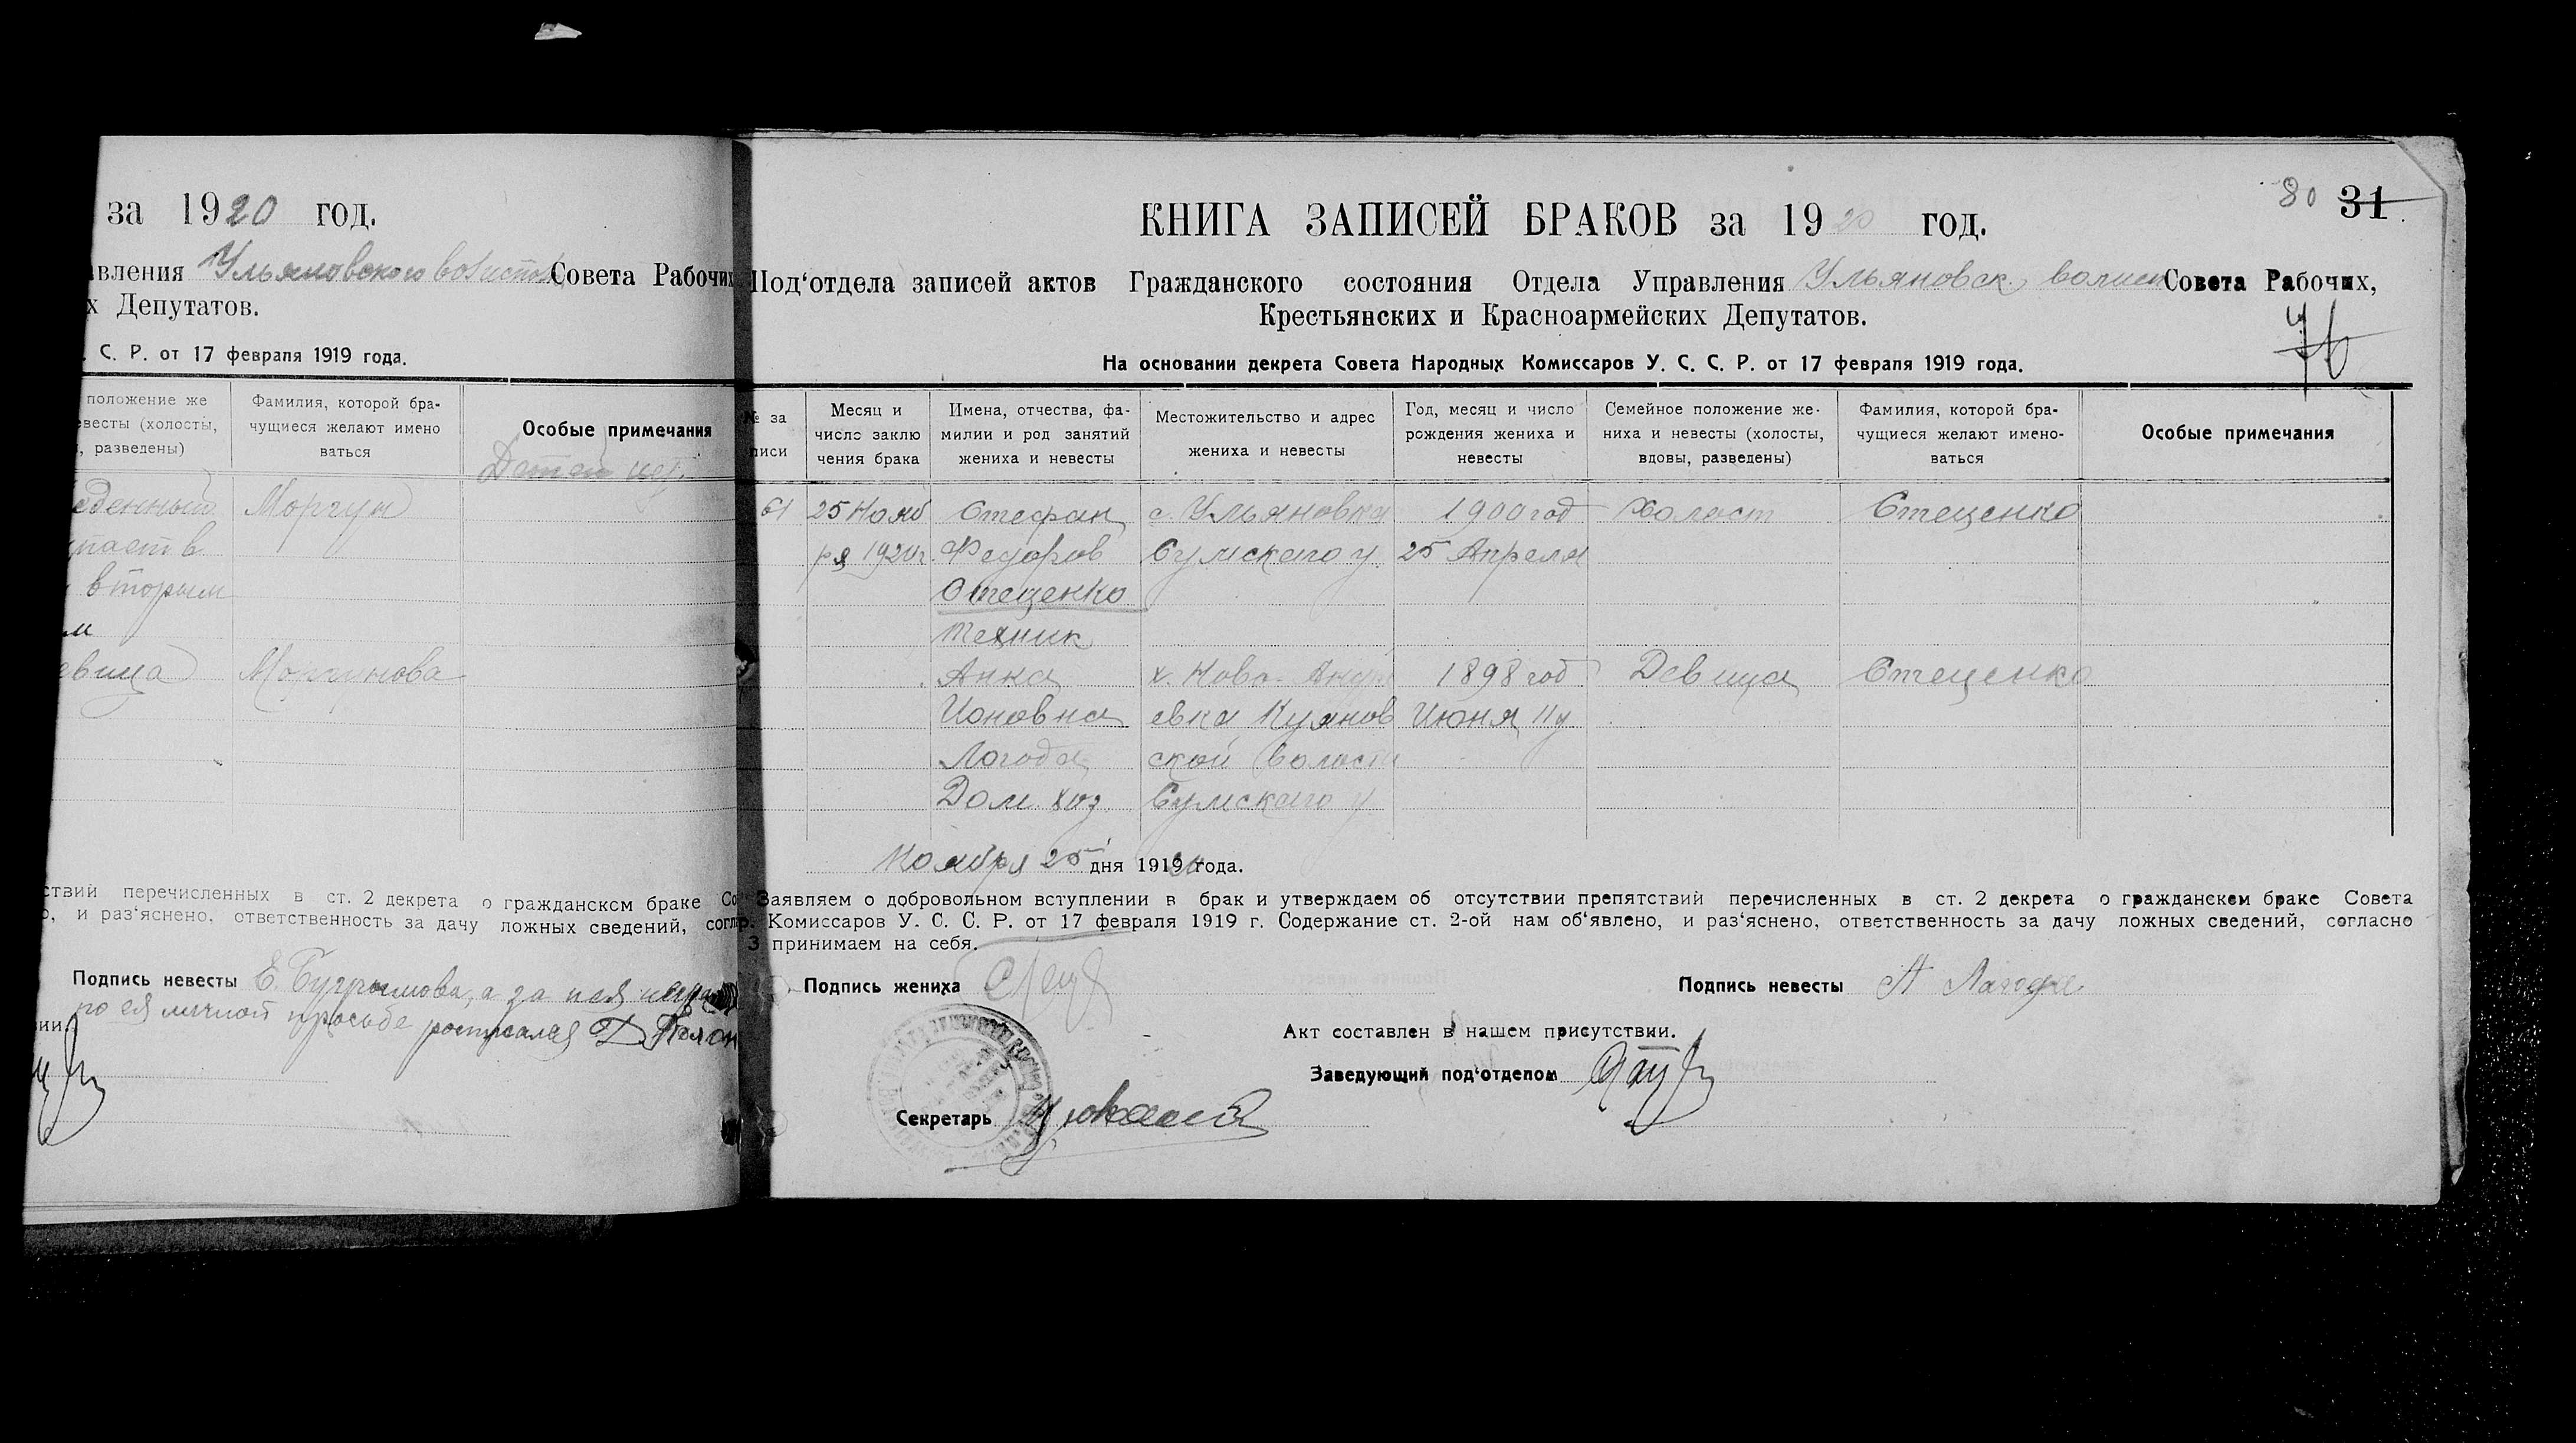 за 1920 год.
авления Ульяновского Совета Рабочих
х Депутатов.
. С. Р. от 17 февраля 1919 года.
положение же
евесты (холосты,
, разведены)
Фамилия, которой бра-
чущиеся желают имено
ваться
Особые примечания
Детей нет.
еденный Моргун
в
вторым
м
евица Моргунова
ствий перечисленных в ст. 2 декрета о гражданском браке Со
о, и раз‘яснено, ответственность за дачу ложных сведений, согл
Подпись невесты Е. а за нея
по ея личной просьбе росписался Д
ии.
80 31
КНИГА ЗАПИСЕЙ БРАКОВ за 1920 год.
Под‘отдела записей актов Гражданского состояния Отдела Управления Ульяновск. волисп Совета Рабочих,
Крестьянских и Красноармейских Депутатов.
76
На основании декрета Совета Народных Комиссаров У. С. С. Р. от 17 февраля 1919 года.
№ за
писи
Месяц и
число заклю
чения брака
Имена, отчества, фа-
милии и род занятий
жениха и невесты
Местожительство и адрес
жениха и невесты
Год, месяц и число
рождения жениха и
невесты
Семейное положение же-
ниха и невесты (холосты,
вдовы, разведены)
Фамилия, которой бра-
чущиеся желают имено-
ваться
Особые примечания
61 25 Нояб Стефан с. Ульяновка 1900 год Холост Стеценко
ря 1920 г. Федоров Сумскаго у 25 Апреля
Стеценко
техник
Анна х. Ново-Андре 1898 год Девица Стеценко
Ионовна евка Куянов Июня 11 у
Логода ской волости
Дом. хоз. Сумскаго у
Ноября 25 дня 1920 года.
Заявляем о добровольном вступлении в брак и утверждаем об отсутствии препятствий перечисленных в ст. 2 декрета о гражданском браке Совета
р. Комиссаров У. С. С. Р. от 17 февраля 1919 г. Содержание ст. 2-ой нам об‘явлено, и раз‘яснено, ответственность за дачу ложных сведений, согласно
3 принимаем на себя.
Подпись жениха
Подпись невесты А Лагода
Акт составлен в нашем присутствии.
Заведующий под‘отделом
Секретарь